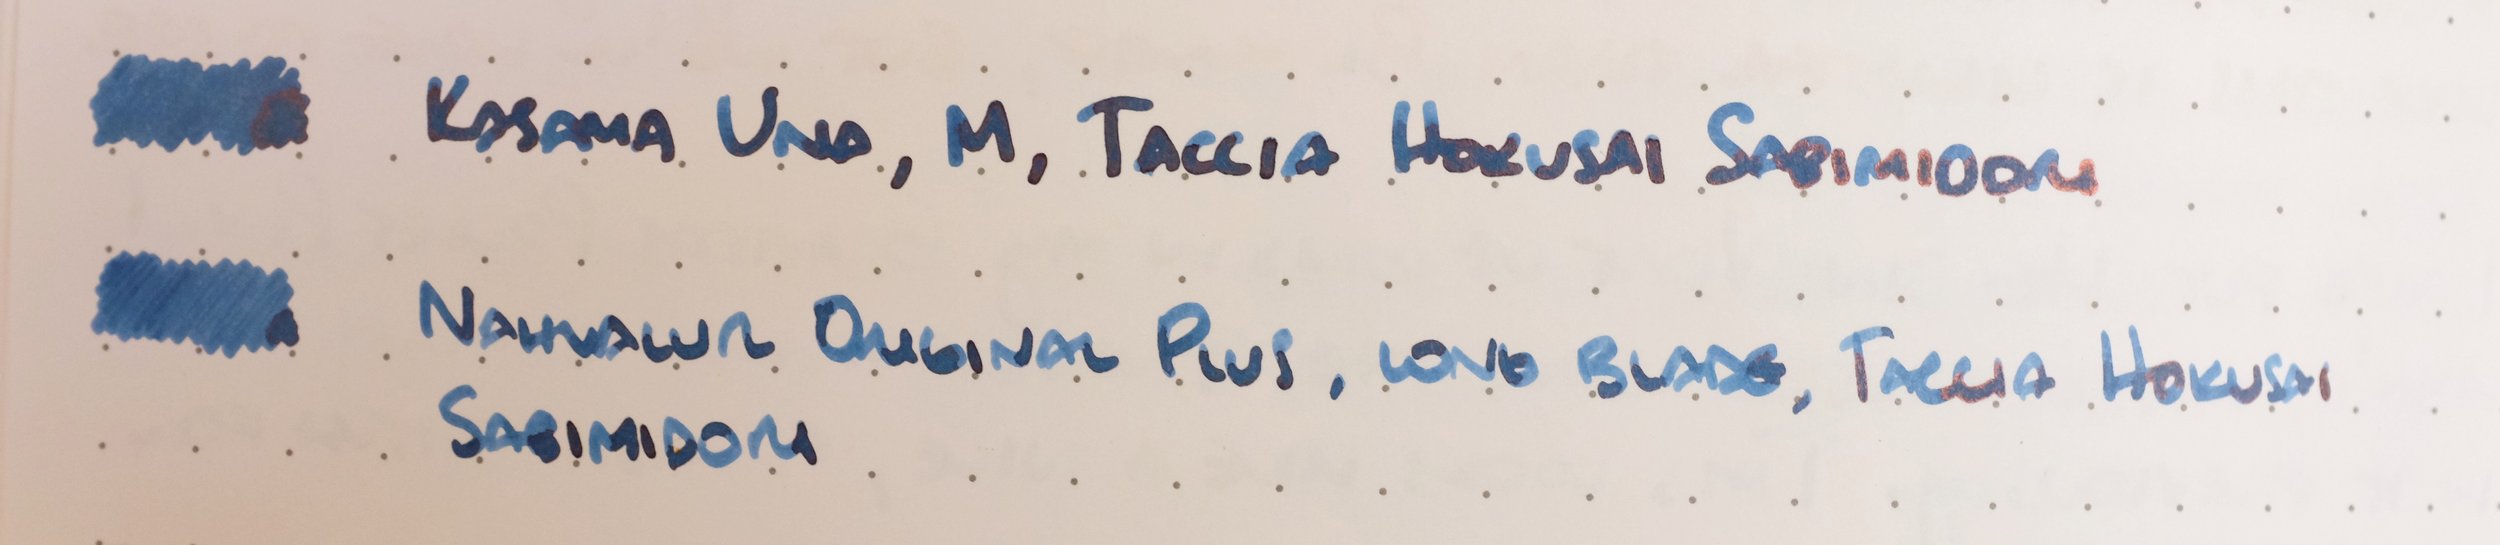 Kasama Una, M, Taccia Hokusai Sabimidori
Nahvalur Original Plus, Long Blade, Taccia Hokusai
Sabimidori